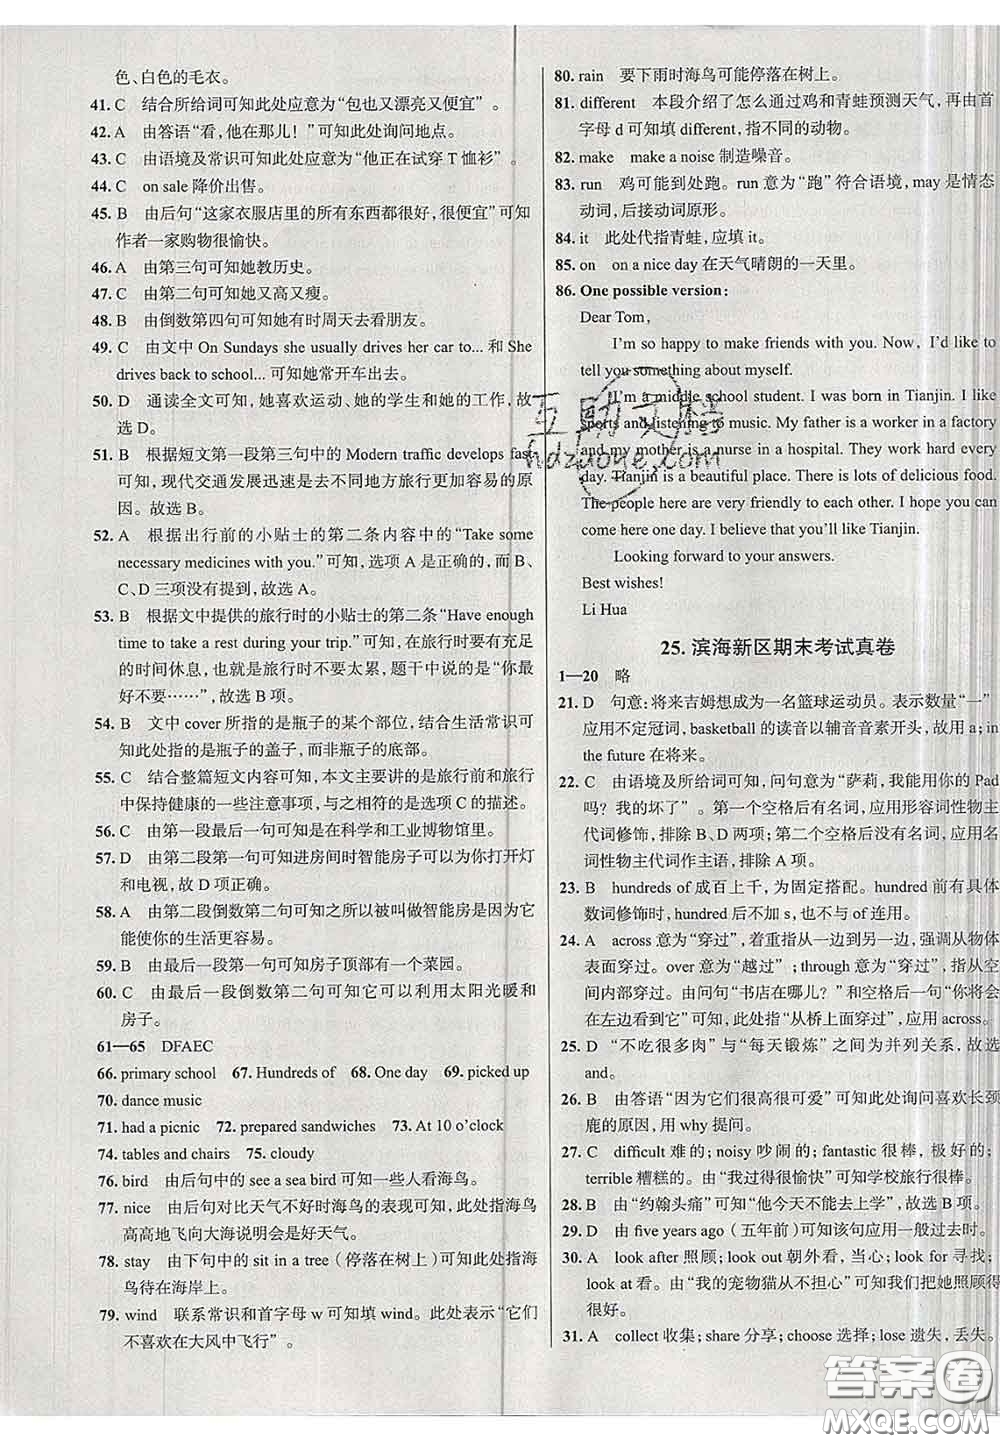 色、白色的毛衣。
41. C 结合所给词可知此处应意为“包也又漂亮又便宜”。
42. A 由答语“看,他在那儿!”可知此处询问地点。
43. C 由语境及常识可知此处应意为“他正在试穿T恤衫”。
44. C on sale 降价出售。
45. B 由后句“这家衣服店里的所有东西都很好,很便宜”可知
作者一家购物很愉快。
46. A 由第三句可知她教历史。
47. C 由第二句可知她又高又瘦。
48. B 由倒数第四句可知她有时周天去看朋友。
49. C 由文中 On Sundays she usually drives her car to... 和 She
drives back to school... 可知她常开车出去。
50. D 通读全文可知,她喜欢运动、她的学生和她的工作,故
选 D。
51. B 根据短文第一段第三句中的 Modern traffic develops fast
可知,现代交通发展迅速是去不同地方旅行更加容易的原
因。故选 B。
52. A 根据出行前的小贴士的第二条内容中的“Take some
necessary medicines with you.”可知,选项 A 是正确的,而 B、
C、D 三项没有提到,故选 A。
53. B 根据文中提供的旅行时的小贴士的第二条“Have enough
time to take a rest during your trip.”可知,在旅行时要有充足
的时间休息,也就是旅行时不要太累,题干中说的是“你最
好不要……”,故选 B 项。
54. B 文中 cover 所指的是瓶子的某个部位,结合生活常识可
知此处指的是瓶子的盖子,而非瓶子的底部。
55. C 结合整篇短文内容可知,本文主要讲的是旅行前和旅行
中保持健康的一些注意事项,与之相符的是选项 C 的描述。
56. C 由第一段最后一句可知是在科学和工业博物馆里。
57. D 由第二段第一句可知进房间时智能房子可以为你打开灯
和电视,故 D 项正确。
58. A 由第二段倒数第二句可知之所以被叫做智能房是因为它
能使你的生活更容易。
59. B 由最后一段第一句可知房子顶部有一个菜园。
60. C 由最后一段倒数第二句可知它可以利用太阳光暖和
房子。
61—65 DFAEC
66. primary school 67. Hundreds of 68. One day 69. picked up
70. dance music
71. had a picnic 72. prepared sandwiches 73. At 10 o'clock
74. tables and chairs 75. cloudy
76. bird 由后句中的 see a sea bird 可知一些人看海鸟。
77. nice 由后句对比天气不好时海鸟的表现可知,此处指海鸟
高高地飞向大海说明会是好天气。
78. stay 由下句中的 sit in a tree(停落在树上)可知此处指海
鸟待在海岸上。
79. wind 联系常识和首字母 w 可知填 wind。此处表示“它们
不喜欢在大风中飞行”。
80. rain 要下雨时海鸟可能停落在树上。
81. different 本段介绍了怎么通过鸡和青蛙预测天气,再由首
字母 d 可知填 different,指不同的动物。
82. make make a noise 制造噪音。
83. run 鸡可能到处跑。run 意为“跑”符合语境,may 是情态
动词,后接动词原形。
84. it 此处代指青蛙,应填 it。
85. on on a nice day 在天气晴朗的一天里。
86. One possible version:
Dear Tom,
I'm so happy to make friends with you. Now, I'd like to
tell you something about myself.
I'm a middle school student. I was born in Tianjin. I like
sports and listening to music. My father is a worker in a factory
and my mother is a nurse in a hospital. They work hard every
day. Tianjin is a beautiful place. There is lots of delicious food.
The people here are very friendly to each other. I hope you can
come here one day. I believe that you'll like Tianjin.
Looking forward to your answers.
Best wishes!
Li Hua
25. 滨海新区期末考试真卷
1—20 略
21. D 句意:将来吉姆想成为一名篮球运动员。表示数量“一”
应用不定冠词,basketball 的读音以辅音音素开头,故用 a; in
the future 在将来。
22. C 由语境及所给词可知,问句意为“萨莉,我能用你的 Pad
吗? 我的坏了”。第一个空格后有名词,应用形容词性物主
代词修饰,排除 B、D 两项;第二个空格后没有名词,应用名
词性物主代词作主语,排除 A 项。
23. B hundreds of 成百上千,为固定搭配。hundred 前有具体
数词修饰时,hundred 后不加 s,也不与 of 连用。
24. A across 意为“穿过”,着重指从一边到另一边,强调从物体
表面穿过。over 意为“越过”;through 意为“穿过”,指从空
间内部穿过。由问句“书店在哪儿?”和后一句“你将会
在左边看到它”可知,此处指“从桥上面穿过”,应用 across。
25. D “不吃很多肉”与“每天锻炼”为并列关系,故选
and。
26. B 由答语“因为它们很高很可爱”可知此处询问喜欢长颈
鹿的原因,用 why 提问。
27. C difficult 难的; noisy 吵闹的; fantastic 很棒,极好的;
terrible 糟糕的。由“我过得很愉快”可知学校旅行很棒。
28. B 由“约翰头痛”可知“他今天不能去上学”,故选 B 项。
29. D 由 five years ago(五年前)可知该句应用一般过去时。
30. A look after 照顾; look out 朝外看,当心; look for 寻找;
look at 看。由“我的宠物猫从不担心”可知我们把她照顾得
很好。
31. A collect 收集; share 分享; choose 选择; lose 遗失,丢失。
互助文档
hdzuone.com
答案圈
MXQE.COM